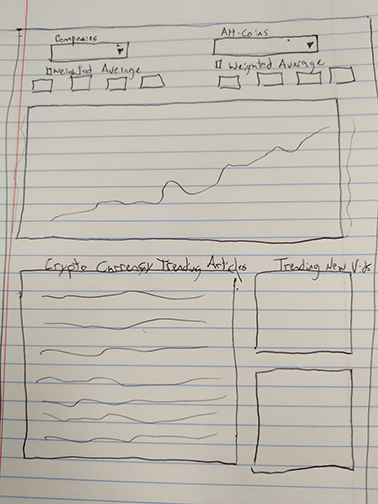 Companies
Alt-Coins
Weighted Average
Weighted Average
Crypto Currency Trending Articles
Trending New Vids